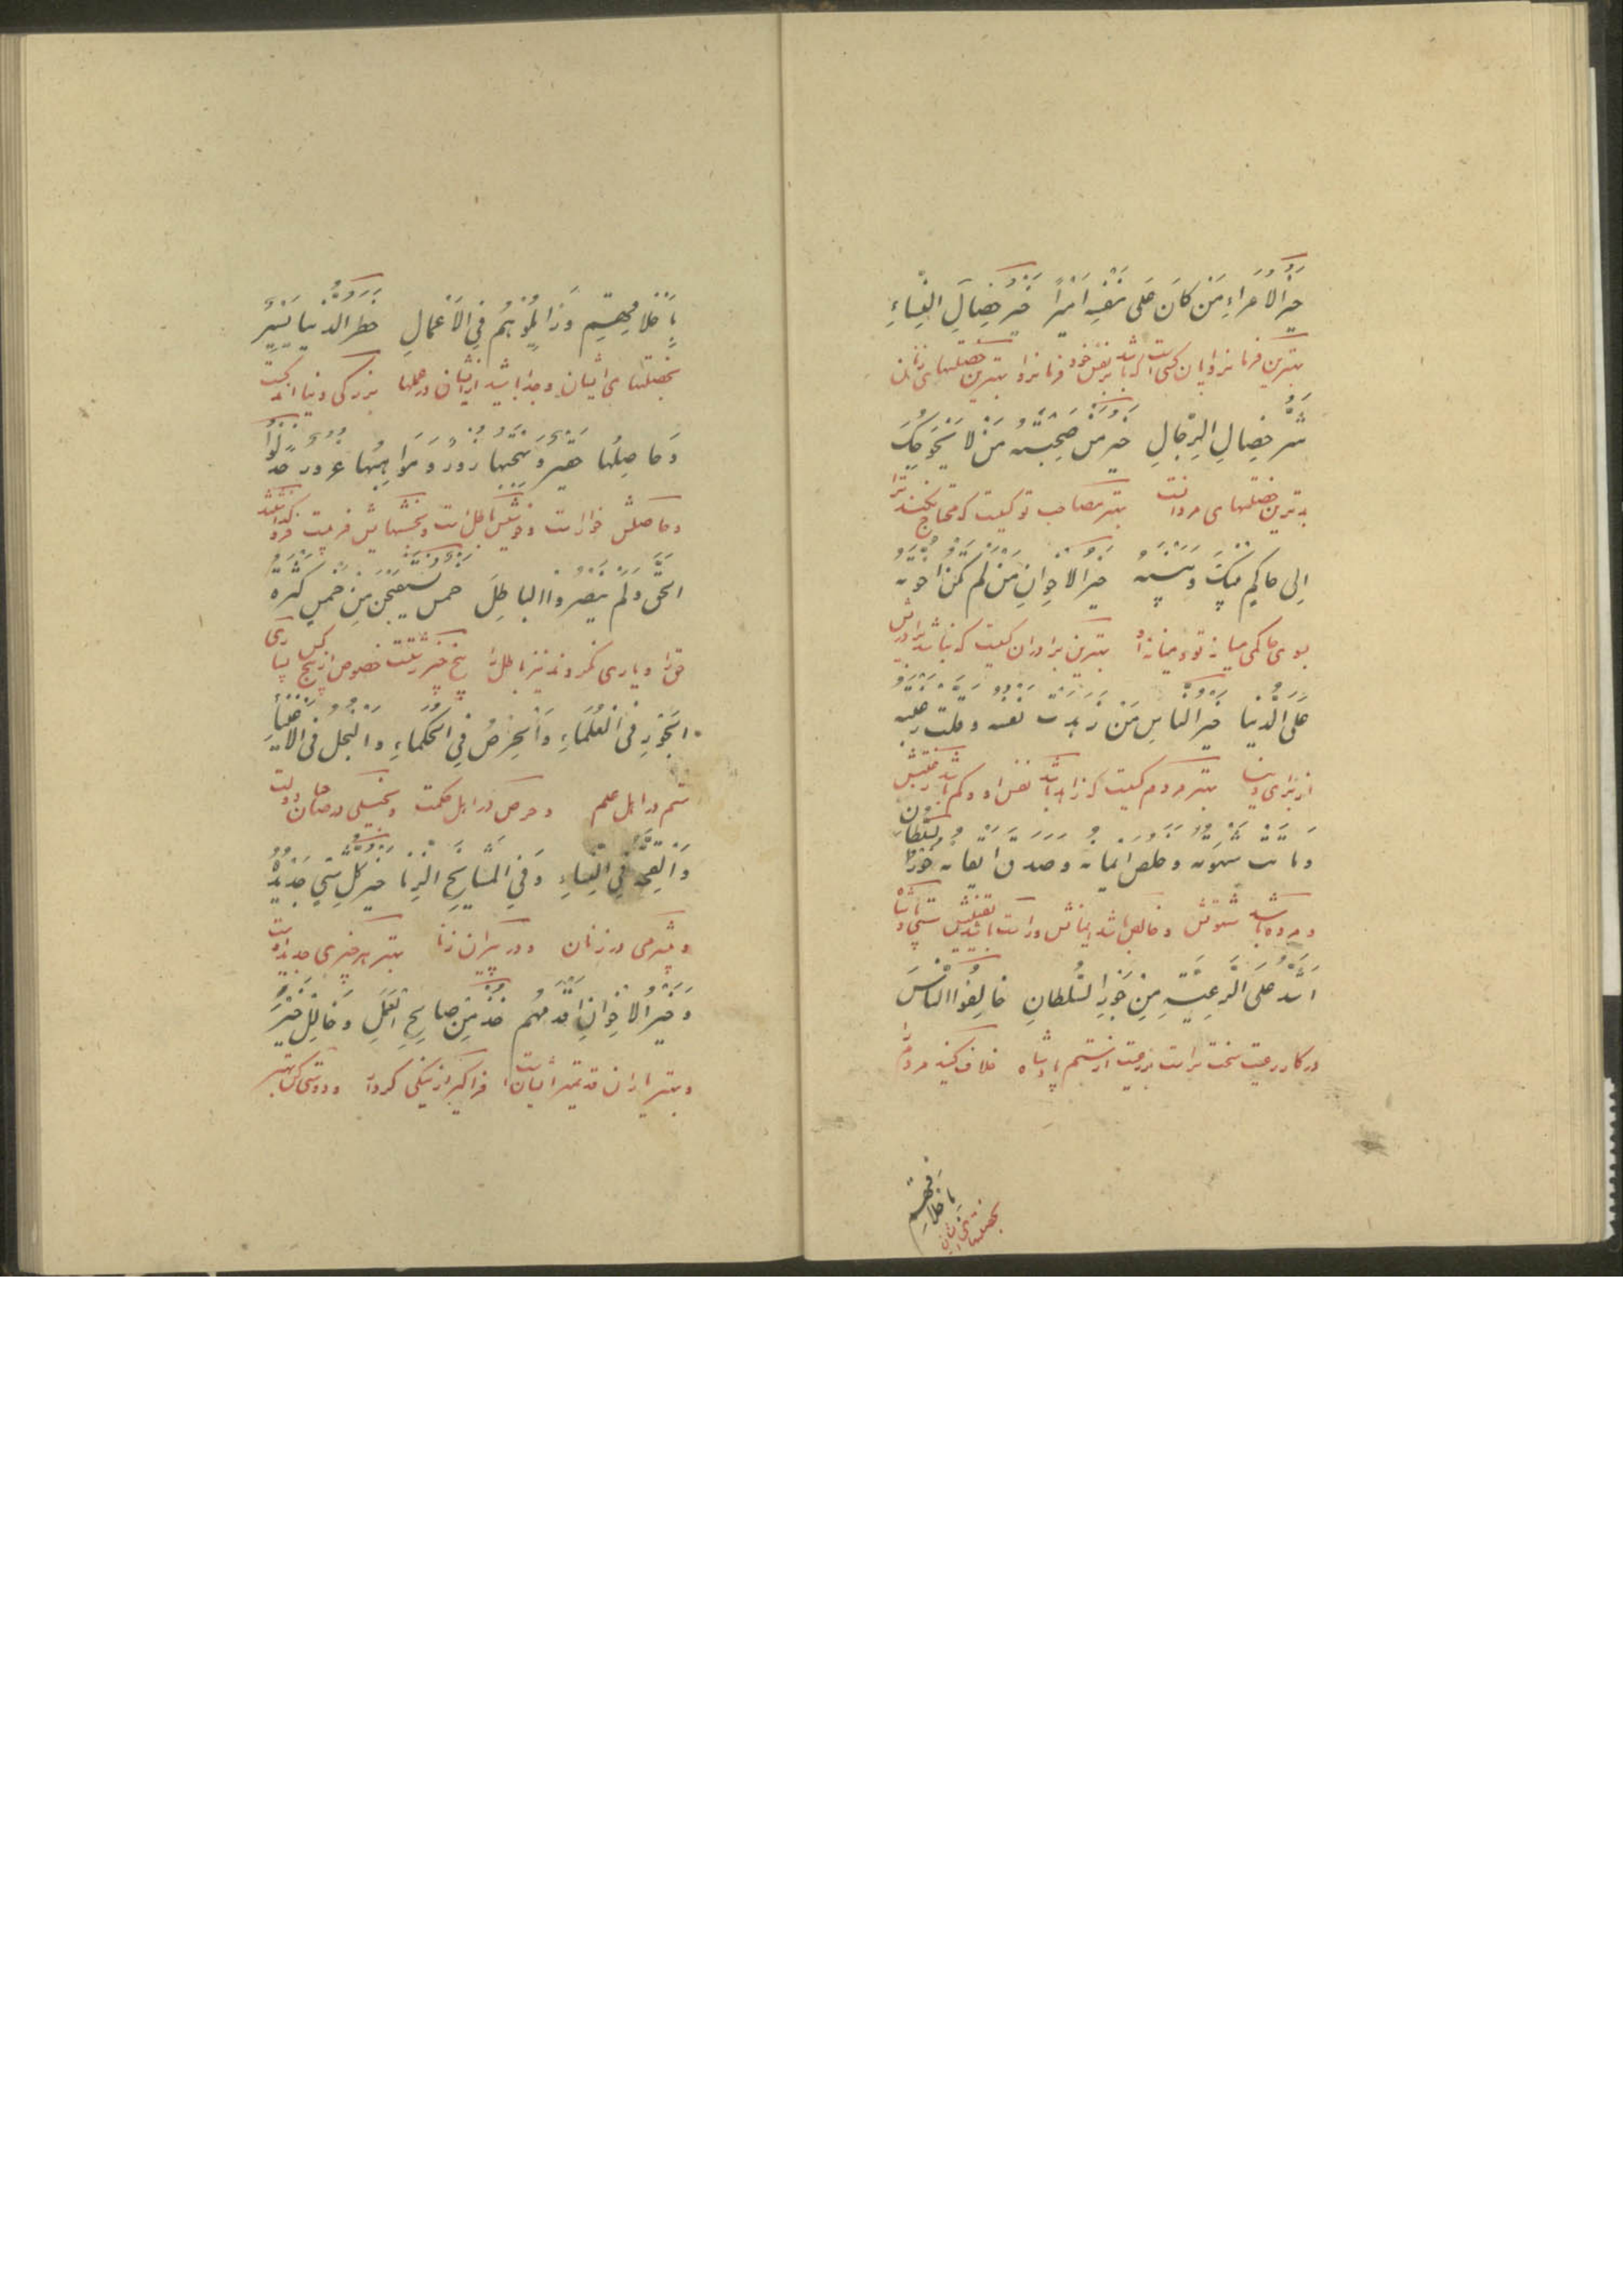 خَيْرُ الاُمَراءِ مَنْ كانَ عَلى نَفْسِهِ اَميراً خَيْرُ خِصالِ النِّساءِ
بهترین فرمانروایان کسی است که باشد بر نفس خود فرمانروا بهترین خصلتهای زنان
شَرُّ خِصالِ الرِّجالِ خَيْرُ مَنْ صَحِبْتَهُ مَنْ لا يُحْوِجُكَ
بدترین خصلتهای مردانست بهتر مصاحب تو کسیست که محتاج نکند ترا
اِلى حاكِمٍ بَيْنَكَ وَبَيْنَهُ خَيْرُ الاِخْوانِ مَنْ لَمْ تَكُنْ اُخُوَّتُهُ
بسوی حاکمی میانه تو و میانه او بهترین برادران کسیست که نباشد برادریش
عَلَى الدُّنْيا خَيْرُ النّاسِ مَنْ زَهِدَتْ نَفْسُهُ وَقَلَّتْ رَغْبَتُهُ
از برای دنیا بهتر مردم کسیست که زاهد باشد نفس او و کم باشد رغبتش
وَماتَتْ شَهْوَتُهُ وَخَلَصَ ايمانُهُ وَصَدَقَ ايقانُهُ خَوَرُ السُّلْطانِ
و مرده باشد شهوتش و خالص باشد ایمانش و راست باشد یقینش سستی پادشاه
اَشَدُّ عَلَى الرَّعِيَّةِ مِنْ جَوْرِ السُّلْطانِ خالِفُوا النّاسَ
در کار رعیت سخت تر است بر رعیت از ستم پادشاه خلاف کنید مردم را
بِاَخْلاقِهِمْ
بخصلتهای ایشان
بِاَخْلاقِهِمْ وَزايِلُوهُمْ فِي الاَعْمالِ خَطَرُ الدُّنْيا يَسيرٌ
بخصلتهای ایشان و جدا باشید از ایشان در عملها بزرکی دنیا اندکست
وَحاصِلُها حَقيرٌ وَبَهْجَتُها زُورٌ وَمَواهِبُها غُرُورٌ خَذَلُوا
و حاصلش خوار است و خوشیش باطل است و بخششهایش فریبست فرو کذاشتند
الْحَقَّ وَلَمْ يَنْصُرُوا الْباطِلَ خَمْسٌ يُسْتَقْبَحْنَ مِنْ خَمْسٍ كَثْرَةُ
حق را و یاری نکردند نیز باطل را پنج چیز زشتست خصوص از پنج کس بسیاری
الْفُجُورِ فِي الْعُلَماءِ وَالْحِرْصُ فِي الْحُكَماءِ وَالْبُخْلُ فِي الاَغْنِياءِ
ستم در اهل علم و حرص در اهل حکمت و بخیلی در صاحبان دولت
وَالْقِحَةُ فِي النِّساءِ وَفِي الْمَشايِخِ الزِّنا خَيْرُ كُلِّ شَيْءٍ جَديدُهُ
و بیشرمی در زنان و در پیران زنا بهتر هر چیزی جدید اوست
وَخَيْرُ الاِخْوانِ اَقْدَمُهُمْ خُذْ مِنْ صالِحِ الْعَمَلِ وَخالِلْ خَيْرَ
و بهتر یاران قدیمتر ایشانست فراکیر از نیکی کردار و دوستی کن بهتر